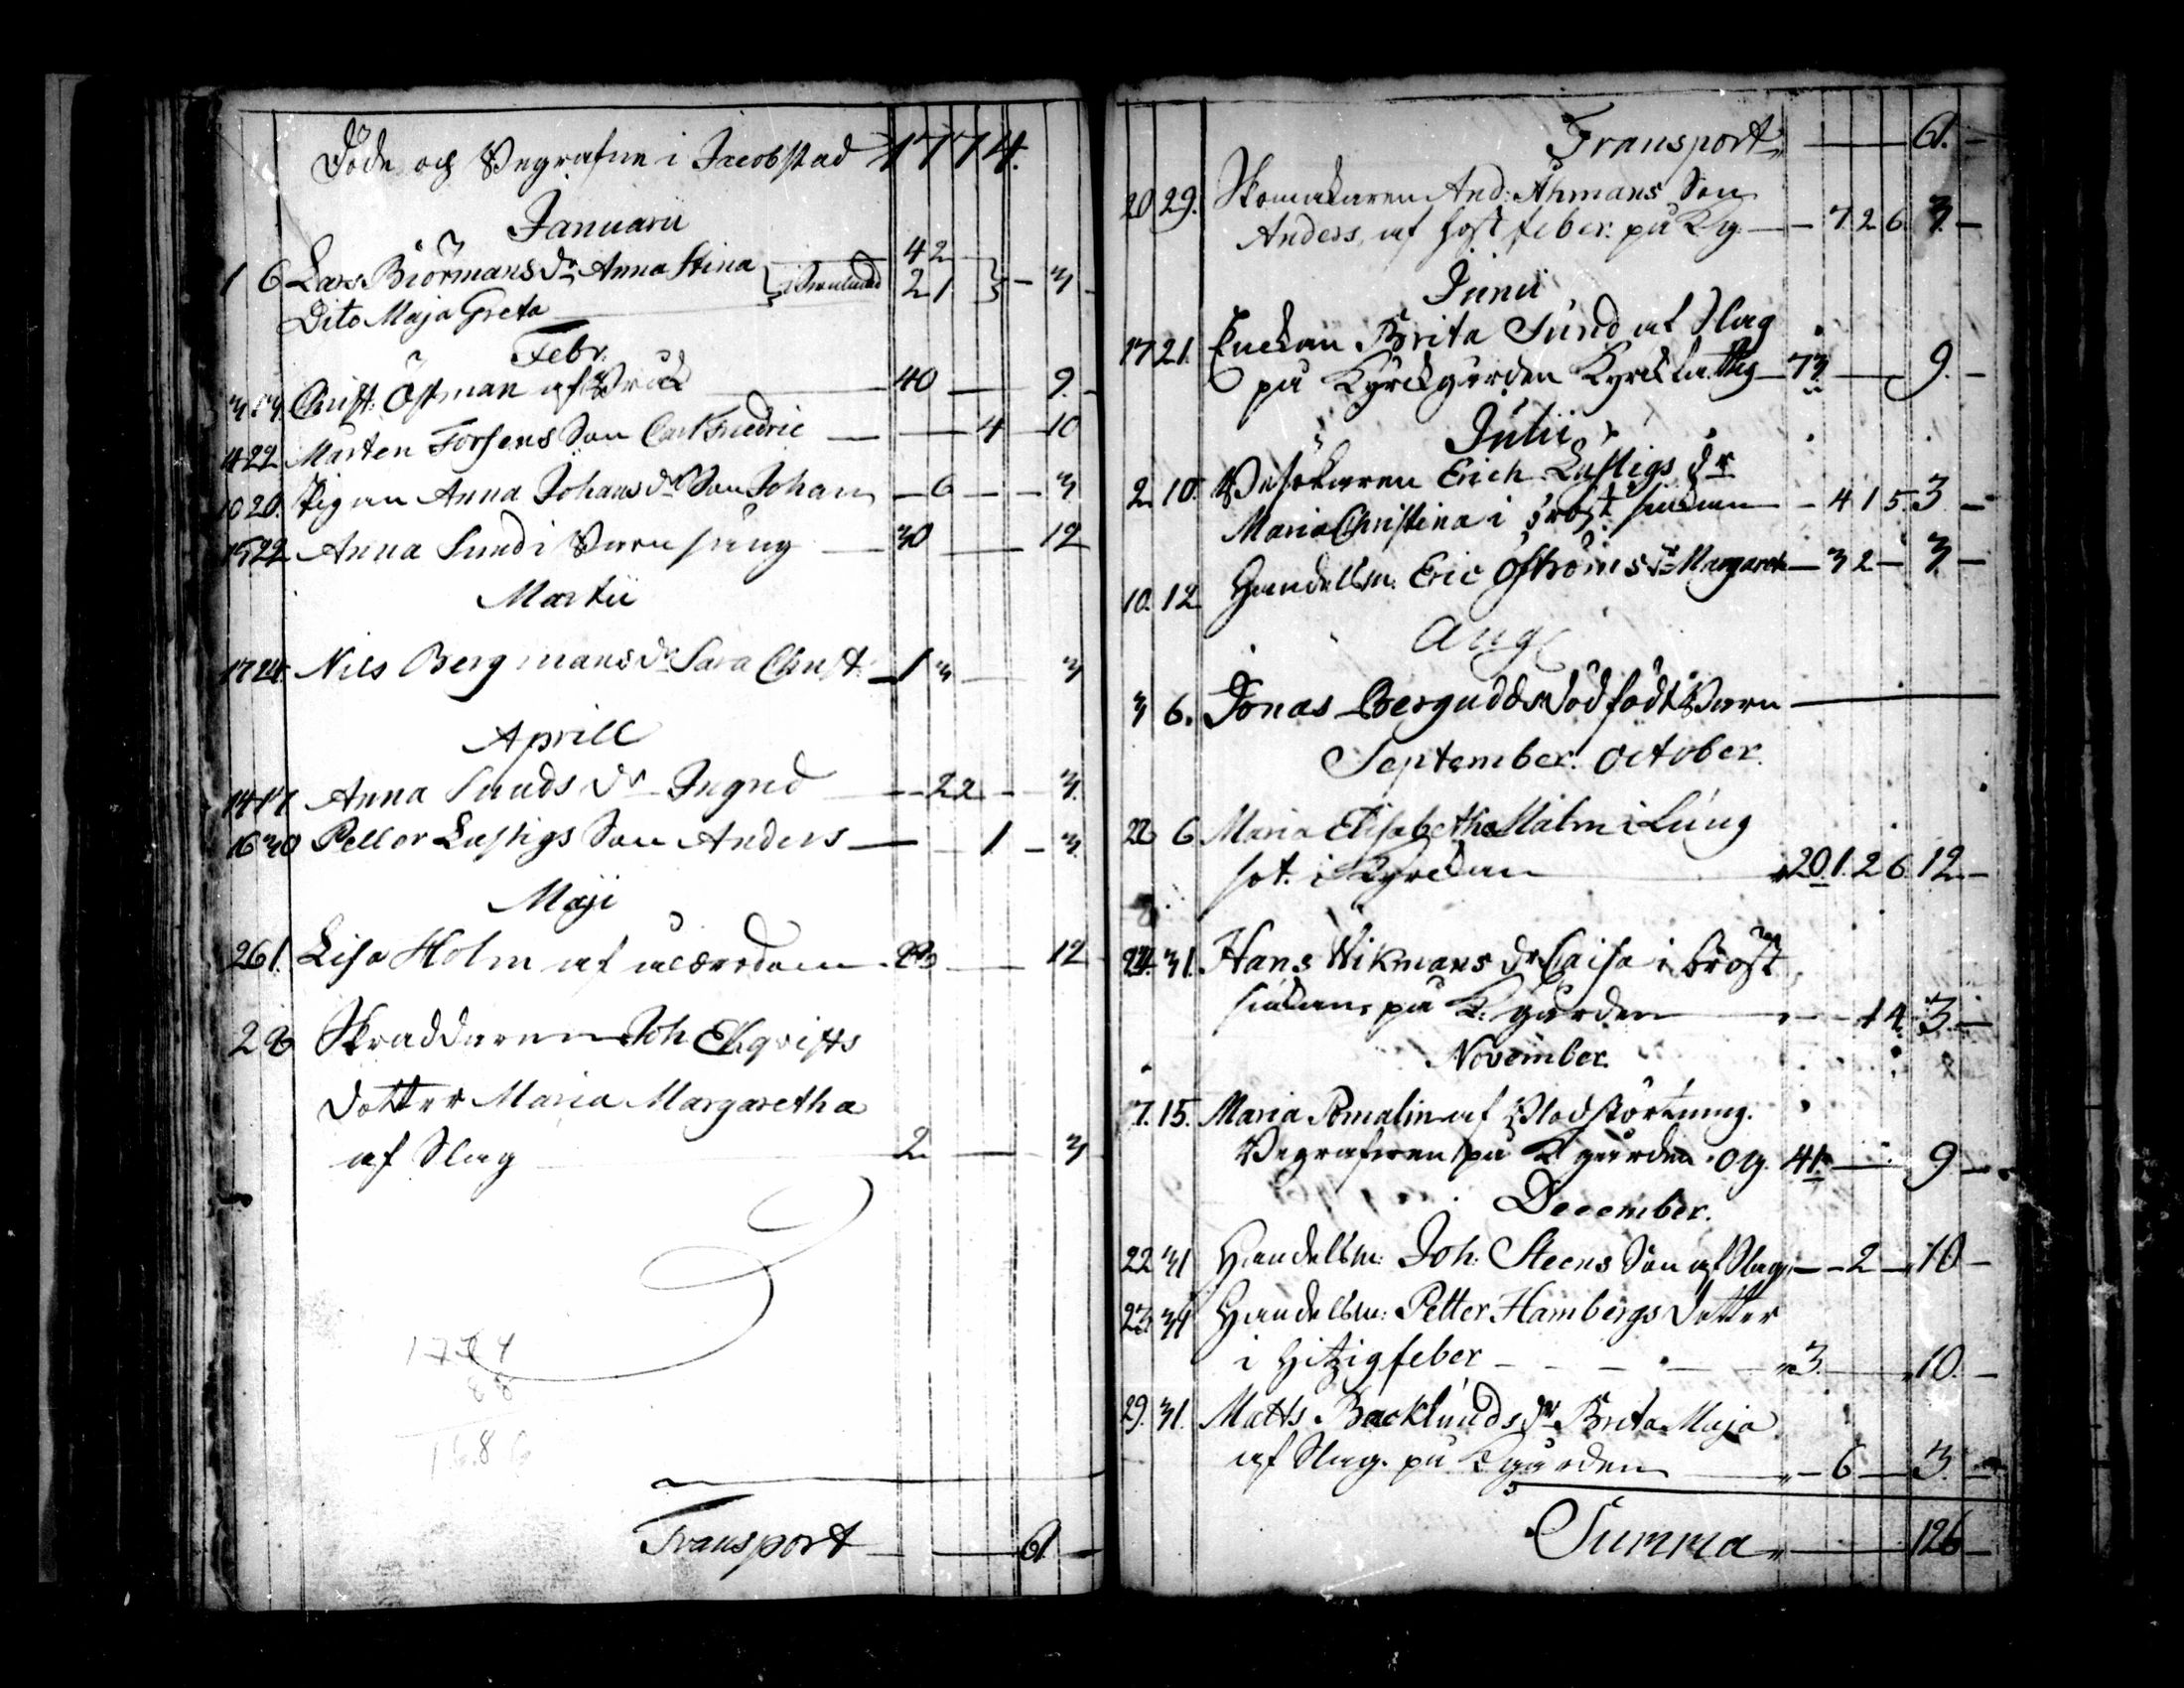 Döde och Begrafne i Jacobstad 1774.
Januarii
1 6 Lars Biörmans dr Anna Stina 42
Dito Maja Greta 21 3
Febr.
Christ: Östman af Bråck 40 9.
4 22 Mårten Forsens Son Carl Fredric 4 10
10 20. Pigan Anna Johansdr Son Johan 6 3
15 22 Anna Sund i Barnsäng 30 12
Martii
17 24. Nils Bergmans dr Sara Christ: 1 3 3
Aprill
14 17 Anna Sunds dr Ingrid 22 3.
16 30 Petter Lustigs Son Anders 1 3.
Maji
26 1. Lisa Holm af ålderdom 12
28 Skräddaren Joh Ekqvists
dotter Maria Margaretha
af Slag 2 3
1774
88
1686
Transport 61
Transport 61.
20 29. Skomakaren And: Åhmans Son
Anders, af Host feber. på Kg 7 2 6 3.
Junii
17 21. Enckan Brita Sund af Slag
på Kyrckgården 73 9.
Julii
2 10. Besökaren Erich Lustigs dr
Maria Christina i bröst siukan 4 1 5. 3
10. 12 Handelsm. Eric Öströms dr Margareta 3 2 3.
Aug
3 6. Jonas Bergudds dödfödt Barn
September. October.
22 6 Maria Elisabetha Malm i Lung
sot. i Kyrckan 20. 1. 2 6. 12
24. 31. Hans Wikmans dr Caisa i bröst
siukan, på K. gården 1 4. 3.
November.
7. 15. Maria Romalin af Blodstörtning.
Begrafwen på Kgården 41 9
December.
22 31 Handelsm: Joh: Steens Son af Slag 2 10
23. 31 Handelsm: Petter Hambergs dotter
i Hitzig feber 3. 10.
29. 31. Matts Backlunds dr Brita Maja
af Slag. på Kgården 6 3.
Summa 126